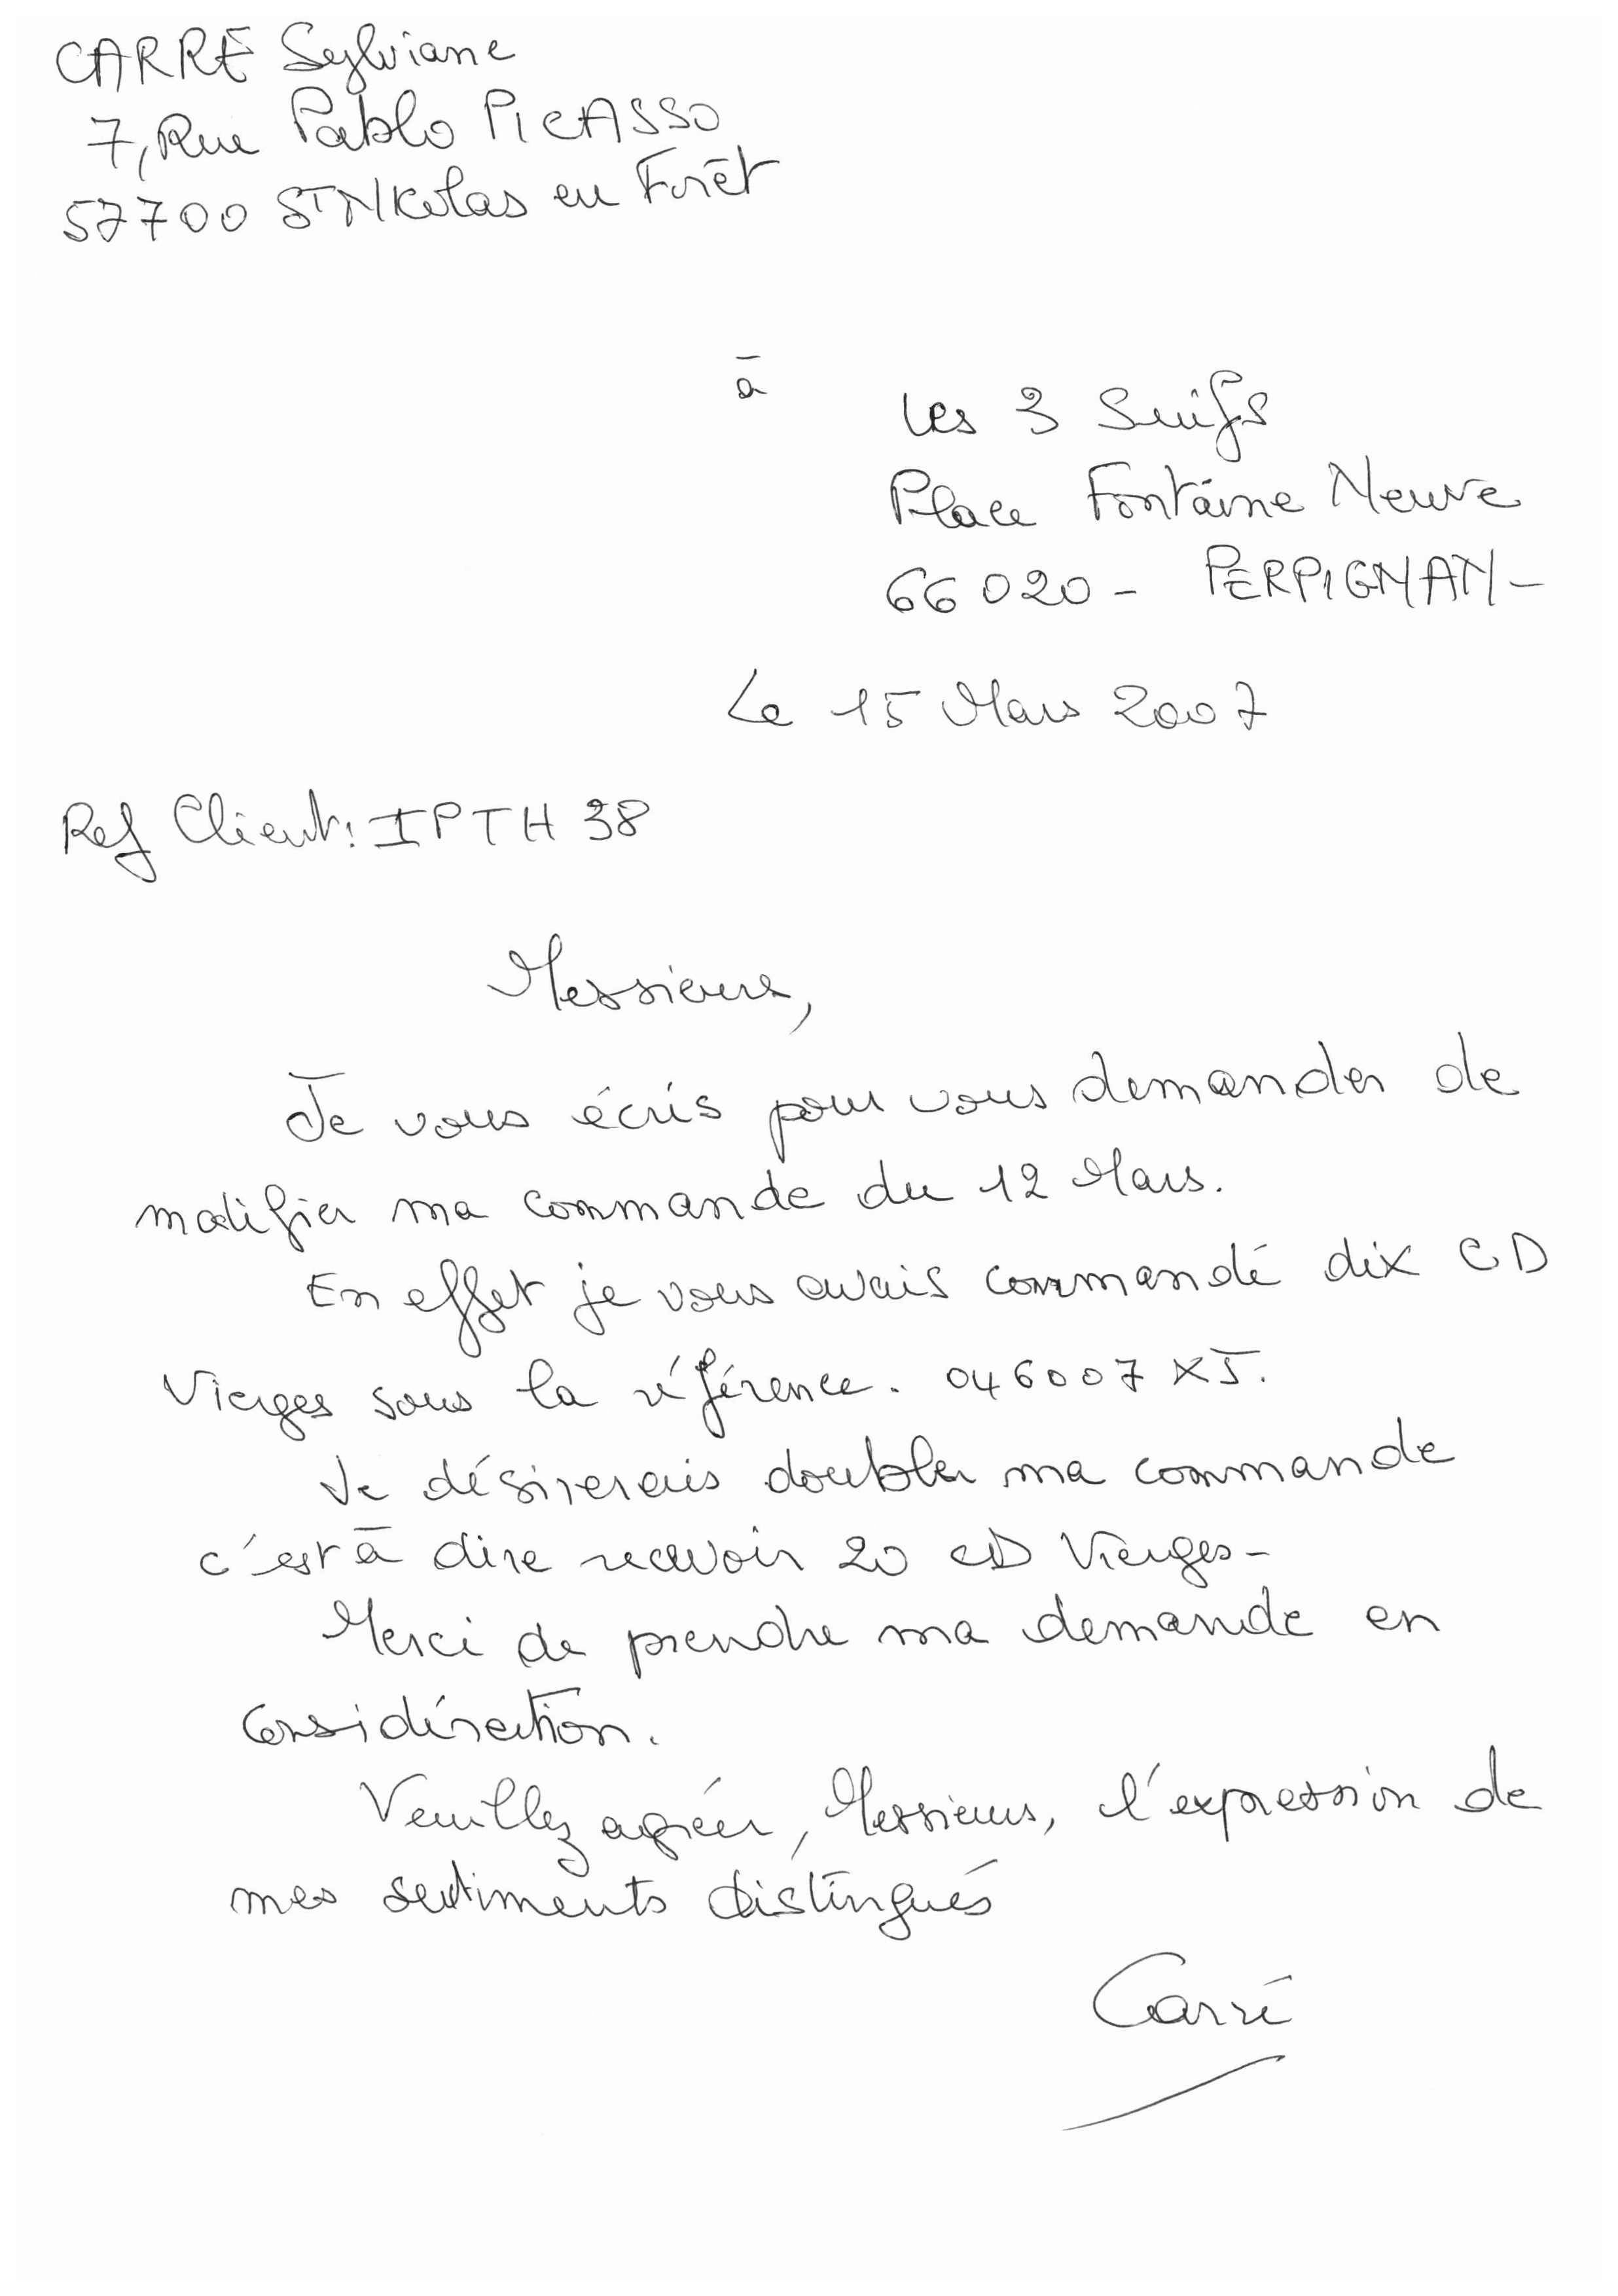 CARRE Sylviane
7, Rue Pablo PICASSO
57700 ST Nicolas en Forêt
à
Les 3 Suifs
Place Fontaine Neuve
66020 - PERPIGNAN -
Le 15 Mars 2007
Ref Client: IPTH 38
Messieurs,
Je vous écris pour vous demander de
modifier ma commande du 12 Mars.
En effet je vous avais commandé dix CD
Vierges sous la référence. 046007XJ.
Je désirerais doubler ma commande
c'est à dire recevoir 20 CD Vierges-
Merci de prendre ma demande en
considération.
Veuillez agréer, Messieurs, l'expression de
mes sentiments distingués
Carré